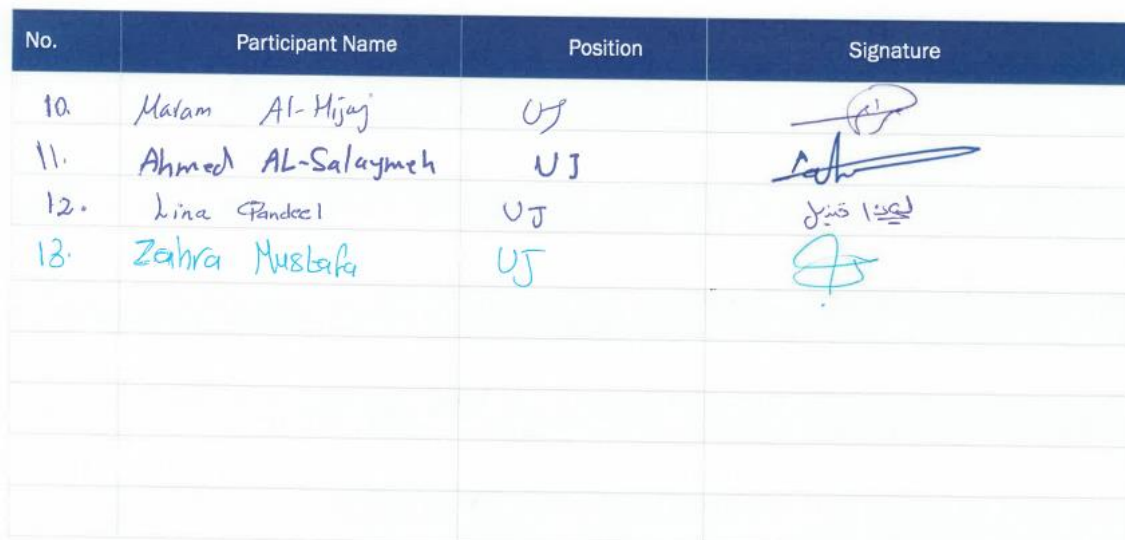 No. Participant Name Position Signature
10. Maram Al-Hijaj UJ
11. Ahmed AL-Salaymeh UJ
12. Lina Qandeel UJ لينا قنديل
13. Zahra Mustafa UJ